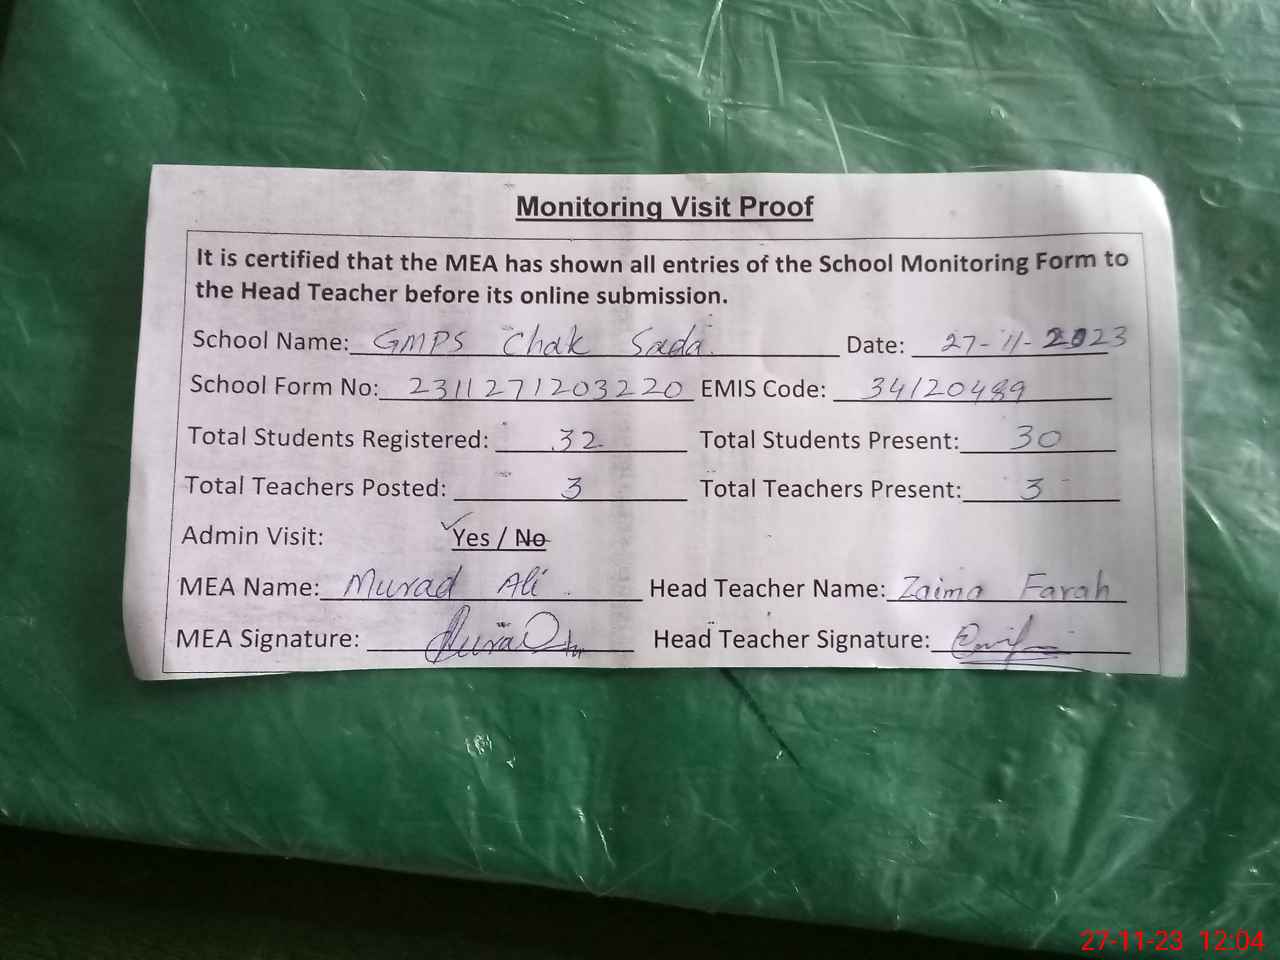 Monitoring Visit Proof
It is certified that the MEA has shown all entries of the School Monitoring Form to
the Head Teacher before its online submission.
School Name: GMPS Chak Sada. Date: 27-11-2023
School Form No: 2311271203220 EMIS Code: 34120489
Total Students Registered: 32 Total Students Present: 30
Total Teachers Posted: 3 Total Teachers Present: 3
Admin Visit: Yes / No
MEA Name: Murad Ali. Head Teacher Name: Zaima Farah
MEA Signature: Head Teacher Signature:
27-11-23 12:04